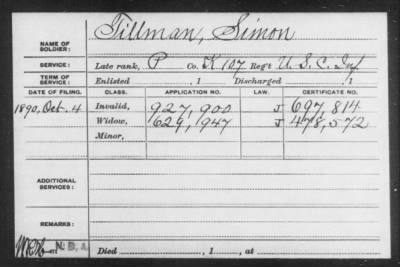 NAME OF SOLDIER: Tillman, Simon
SERVICE: Late rank, P Co. K 107 Reg't U. S. C. Inf
TERM OF SERVICE: Enlisted , 1 Discharged , 1
DATE OF FILING. CLASS. APPLICATION NO. LAW. CERTIFICATE NO.
1890, Oct. 4 Invalid, 927,900 J 697,814
Widow, 629,947 J 478,572
Minor,
ADDITIONAL SERVICES:
REMARKS:
Died , 1 , at